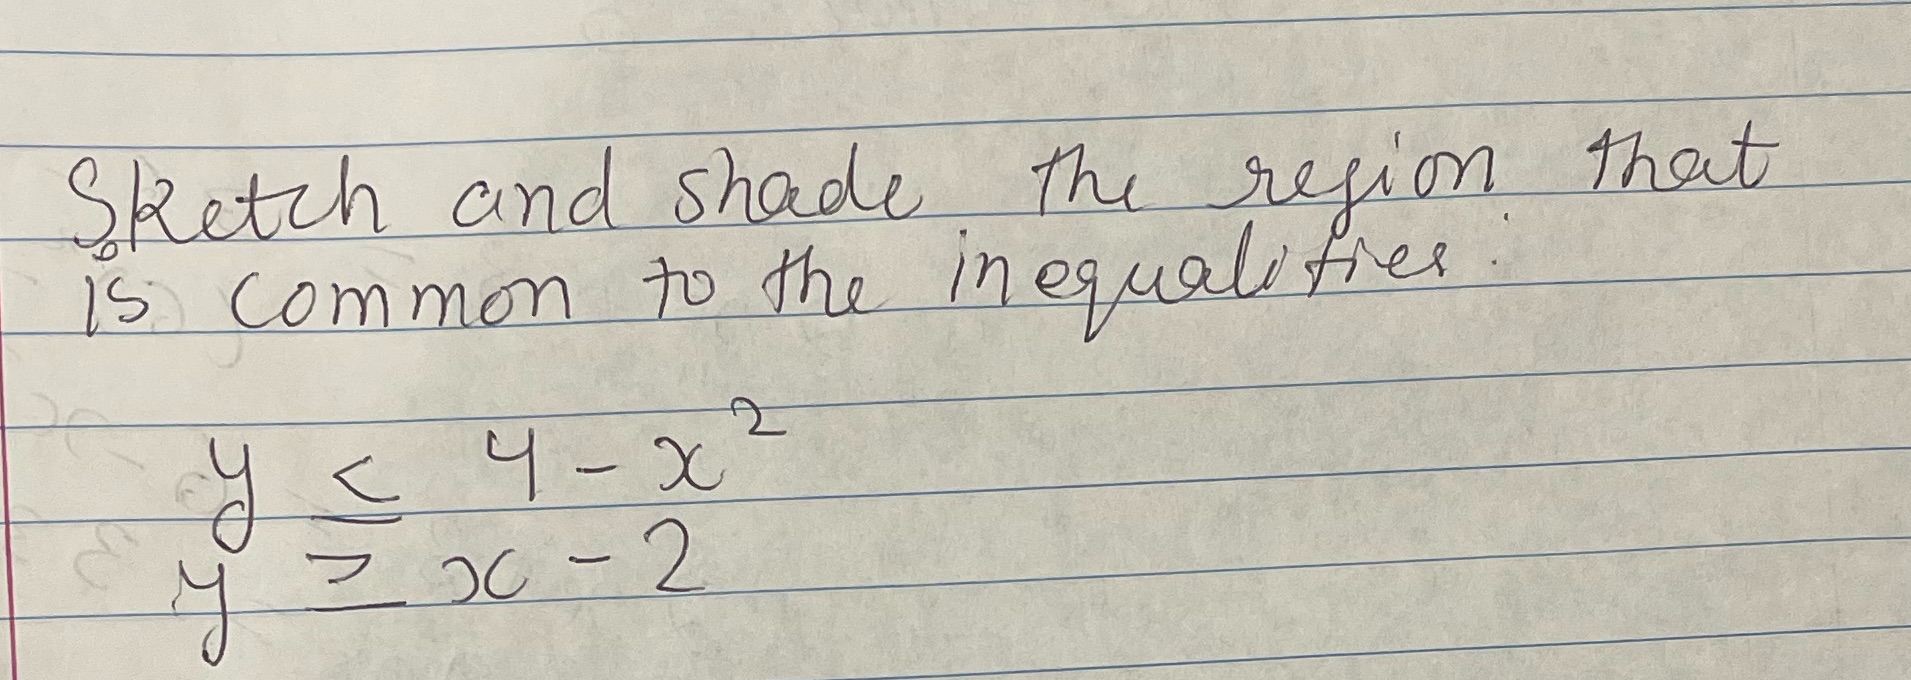 Sketch and shade the region that
is common to the inequalities:
y ≤ 4 - x²
y ≥ x - 2